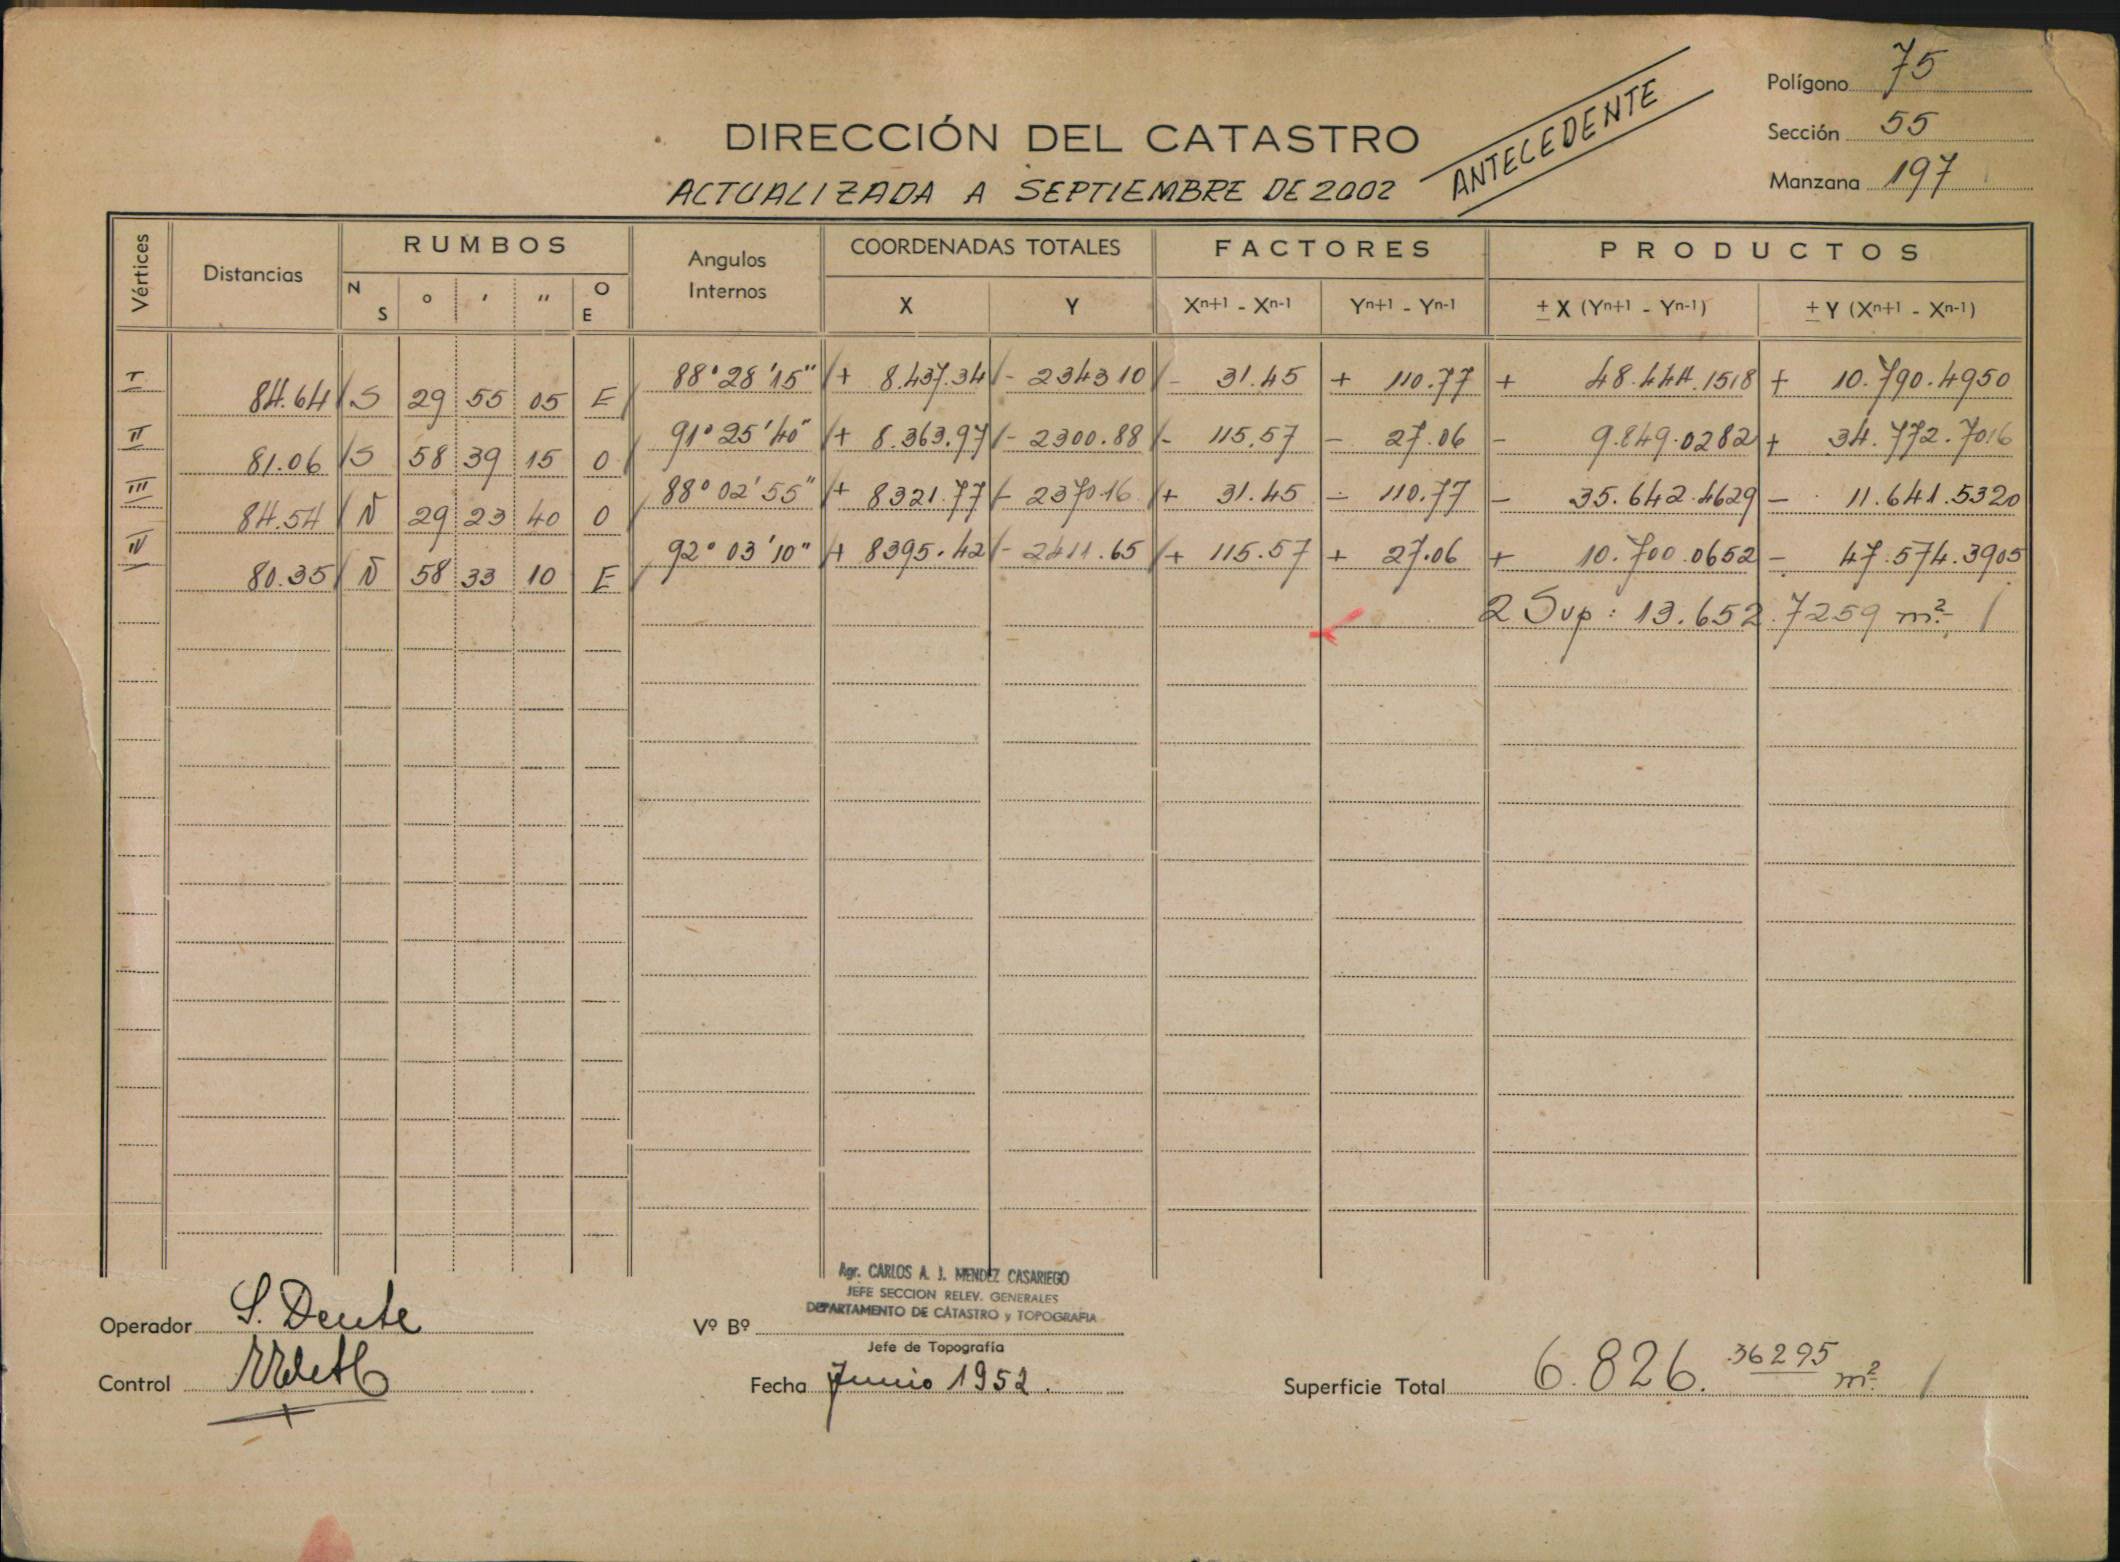 Polígono 75
DIRECCIÓN DEL CATASTRO
ANTECEDENTE
Sección 55
ACTUALIZADA A SEPTIEMBRE DE 2002
Manzana 197
Vértices Distancias RUMBOS Angulos Internos COORDENADAS TOTALES FACTORES PRODUCTOS
N S ° ' " O E X Y Xn+1 - Xn-1 Yn+1 - Yn-1 ± X (Yn+1 - Yn-1) ± Y (Xn+1 - Xn-1)
I 88°28'15" + 8.437.34 - 2343 10 - 31.45 + 110.77 + 48.444.1518 + 10.790.4950
84.64 S 29 55 05 E
II 91°25'40" + 8.363.97 - 2300.88 - 115.57 - 27.06 - 9.849.0282 + 34.772.7016
81.06 S 58 39 15 O
III 88°02'55" + 8321.77 - 2370.16 + 31.45 - 110.77 - 35.642.4629 - 11.641.5320
84.54 N 29 23 40 O
IV 92°03'10" + 8395.42 - 2411.65 + 115.57 + 27.06 + 10.700.0652 - 47.574.3905
80.35 N 58 33 10 E
2 Sup: 13.652.7259 m²
Agr. CARLOS A. J. MENDEZ CASARIEGO
JEFE SECCION RELEV. GENERALES
DEPARTAMENTO DE CATASTRO y TOPOGRAFIA
Operador S. Dente
Vº Bº
Jefe de Topografía
Control
Fecha Junio 1952.
Superficie Total 6.826.36295 m²